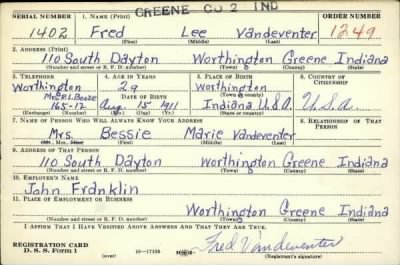 GREENE CO 2 IND
SERIAL NUMBER 1. NAME (Print) ORDER NUMBER
1402 Fred Lee Vandeventer 1249
(First) (Middle) (Last)
2. ADDRESS (Print)
110 South Dayton Worthington Greene Indiana
(Number and street or R. F. D. number) (Town) (County) (State)
3. TELEPHONE 4. AGE IN YEARS 5. PLACE OF BIRTH 6. COUNTRY OF CITIZENSHIP
Worthington 29 Worthington
Mrs R.L. Booze DATE OF BIRTH (Town or county)
165-12 Aug 15 1911 Indiana U.S.A. U.S.A.
(Exchange) (Number) (Mo.) (Day) (Yr.) (State or country)
7. NAME OF PERSON WHO WILL ALWAYS KNOW YOUR ADDRESS 8. RELATIONSHIP OF THAT PERSON
Mrs. Bessie Marie Vandeventer
(Mr., Mrs., Miss) (First) (Middle) (Last)
9. ADDRESS OF THAT PERSON
110 South Dayton Worthington Greene Indiana
(Number and street or R. F. D. number) (Town) (County) (State)
10. EMPLOYER'S NAME
John Franklin
11. PLACE OF EMPLOYMENT OR BUSINESS
Worthington Greene Indiana
(Number and street or R. F. D. number) (Town) (County) (State)
I AFFIRM THAT I HAVE VERIFIED ABOVE ANSWERS AND THAT THEY ARE TRUE.
REGISTRATION CARD
D. S. S. Form 1 (over) Fred Vandeventer
(Registrant's signature)